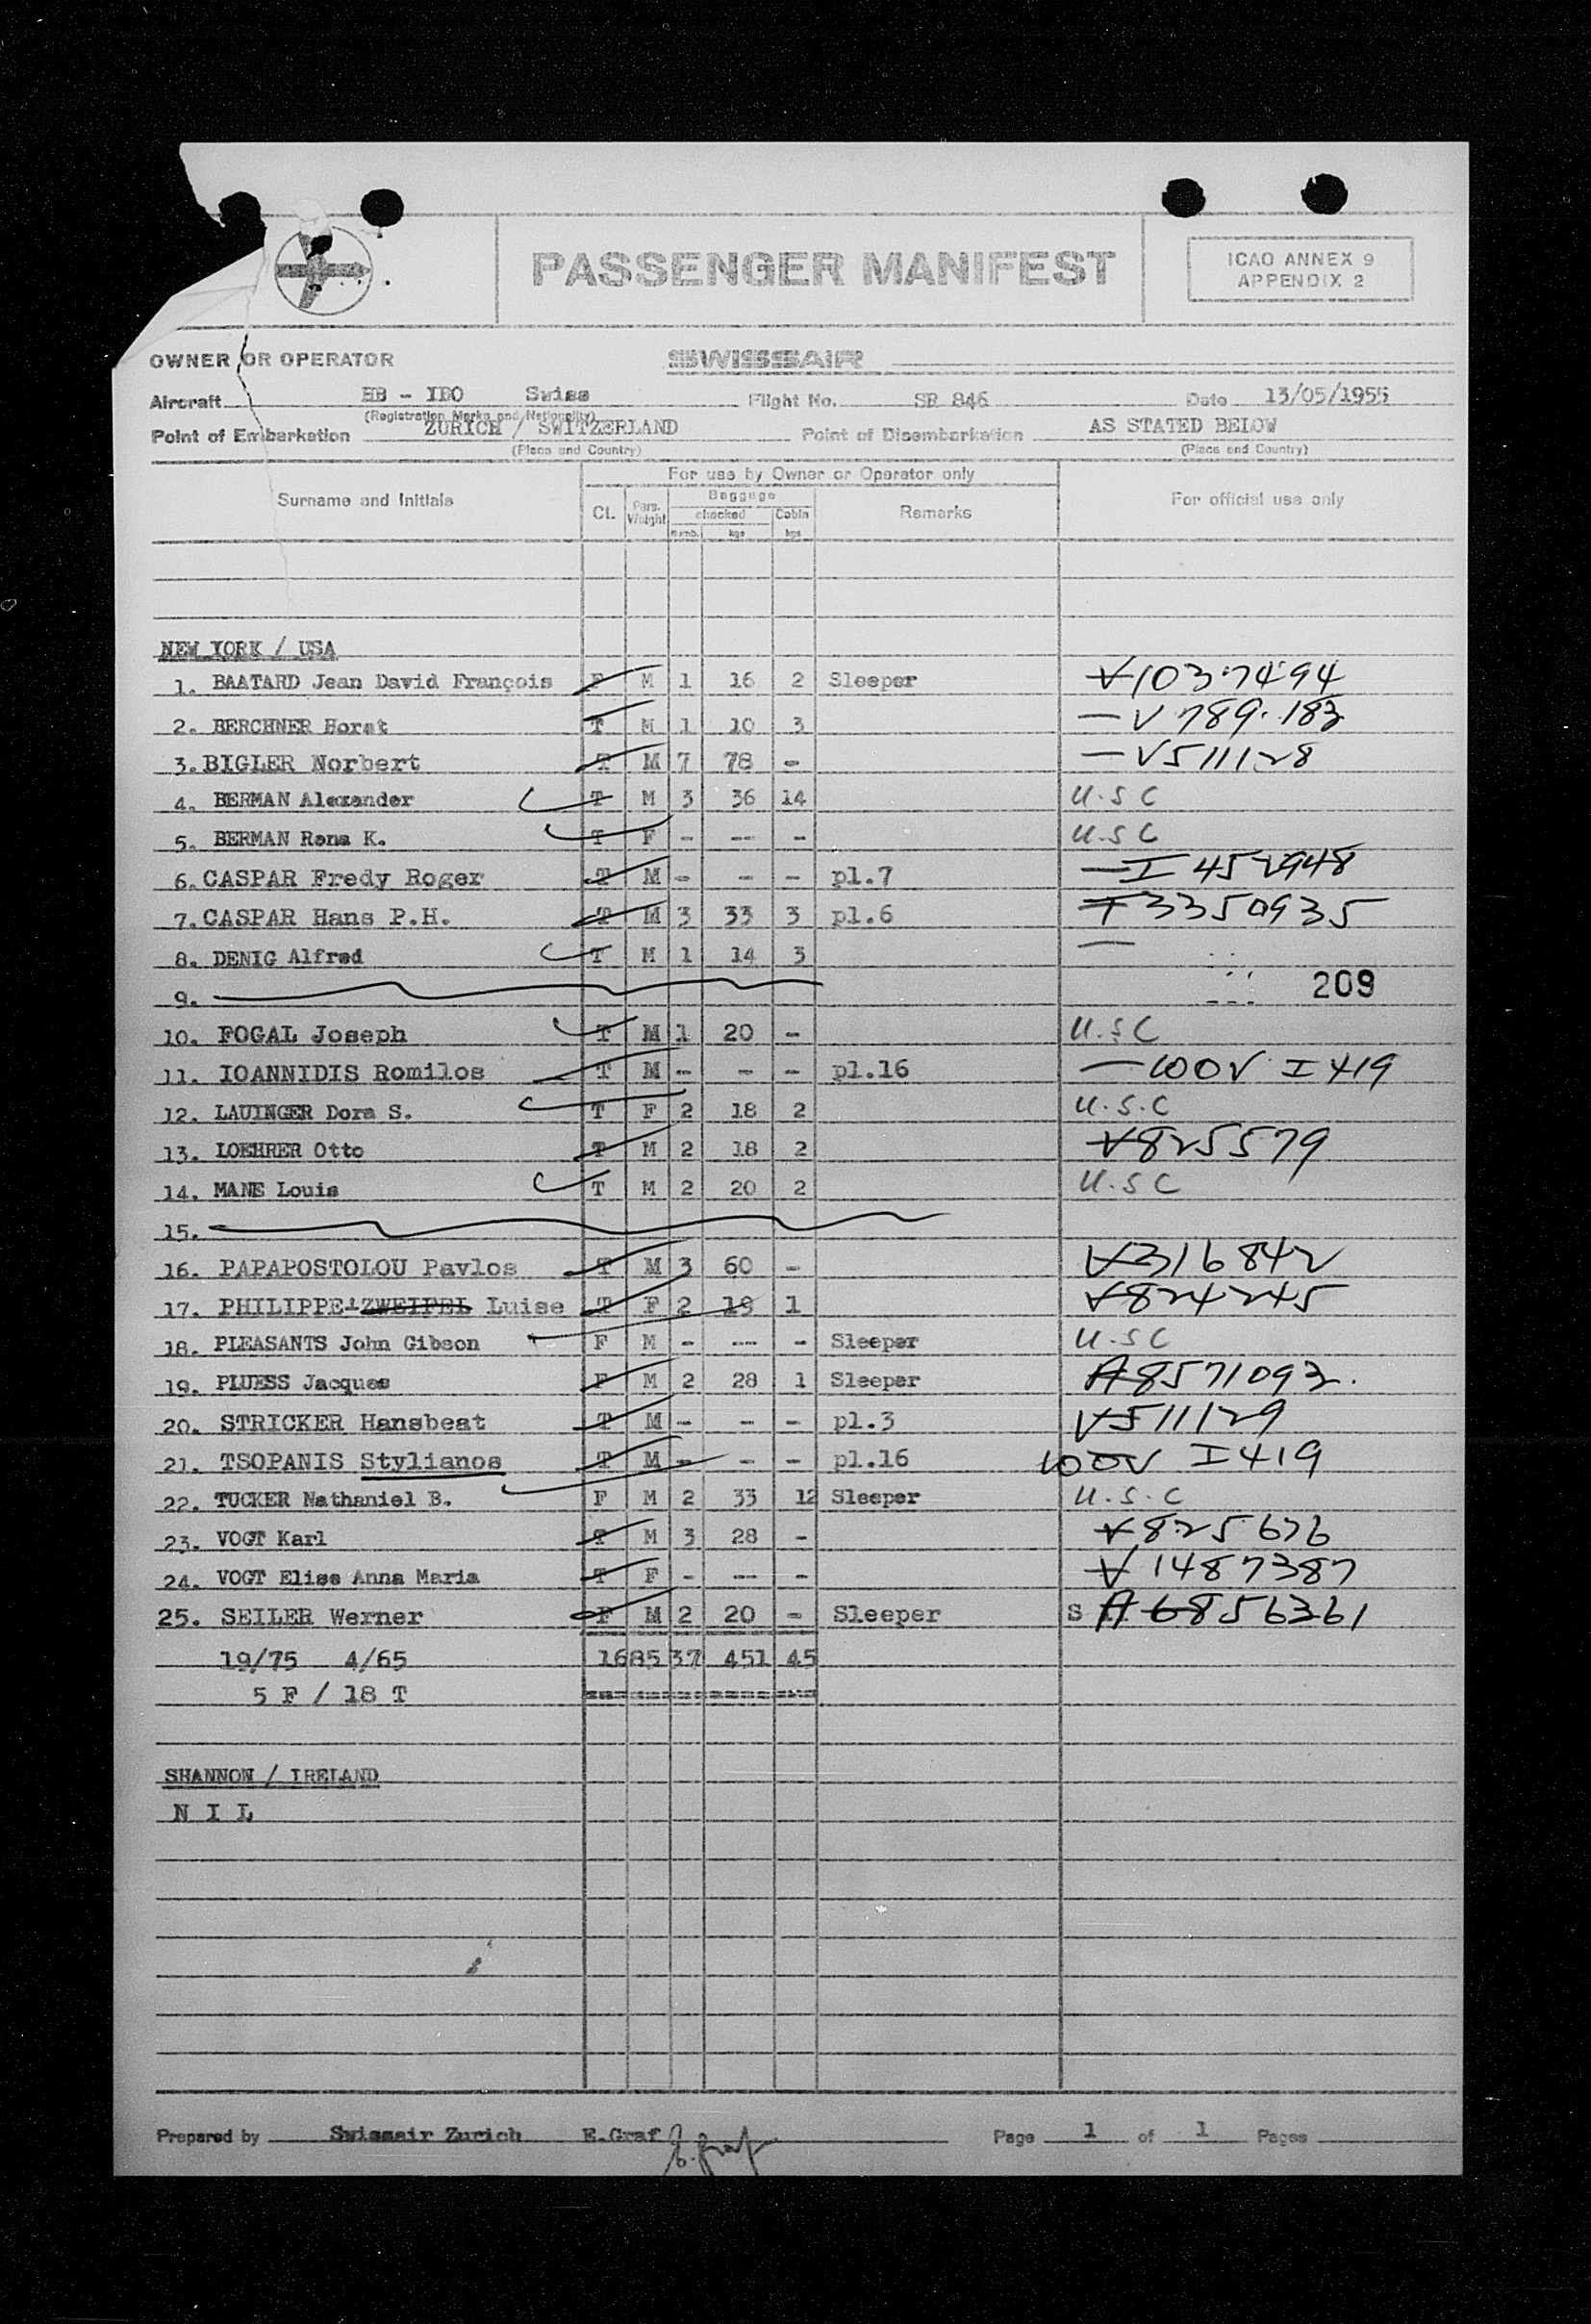 PASSENGER MANIFEST
ICAO ANNEX 9
APPENDIX 2
OWNER OR OPERATOR SWISSAIR
Aircraft HB - IBO Swiss Flight No. SR 846 Date 13/05/1955
(Registration Marks and Nationality)
Point of Embarkation ZURICH / SWITZERLAND Point of Disembarkation AS STATED BELOW
(Place and Country) (Place and Country)
For use by Owner or Operator only
Surname and Initials Cl. Pers. Weight Baggage checked Cabin Remarks For official use only
Numb. kgs kgs
NEW YORK / USA
1. BAATARD Jean David François F M 1 16 2 Sleeper V1037494
2. BERCHNER Horst T M 1 10 3 - V 789.183
3. BIGLER Norbert T M 7 78 - - V511128
4. BERMAN Alexander T M 3 36 14 U.S C
5. BERMAN Rena K. T F - -- - U.S C
6. CASPAR Fredy Roger T M - - - pl.7 - I 452948
7. CASPAR Hans P.H. T M 3 33 3 pl.6 I3350935
8. DENIG Alfred T M 1 14 3 -
9. 209
10. FOGAL Joseph T M 1 20 - U.S C
11. IOANNIDIS Romilos T M - - - pl.16 - 100V I 419
12. LAUINGER Dora S. T F 2 18 2 U.S.C
13. LOEHRER Otto T M 2 18 2 V825579
14. MANE Louis T M 2 20 2 U.S C
15.
16. PAPAPOSTOLOU Pavlos T M 3 60 - V316842
17. PHILIPPE-ZWEIFEL Luise T F 2 19 1 V824245
18. PLEASANTS John Gibson F M - --- - Sleeper U.S C
19. PLUESS Jacques F M 2 28 1 Sleeper A8571093.
20. STRICKER Hansbeat T M - - - pl.3 V511129
21. TSOPANIS Stylianos T M - - - pl.16 100V I 419
22. TUCKER Nathaniel B. F M 2 33 12 Sleeper U.S.C
23. VOGT Karl T M 3 28 - V825676
24. VOGT Elise Anna Maria T F - --- - V 1487387
25. SEILER Werner F M 2 20 - Sleeper S A 6856361
19/75 4/65 1685 37 451 45
5 F / 18 T
SHANNON / IRELAND
N I L
Prepared by Swissair Zurich E.Graf E. Graf Page 1 of 1 Pages